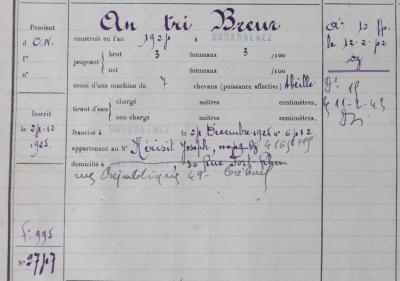 An tri Breur
Provient
d O.N.
f°
n°
construit en l'an 192 à DOUARNENEZ
jaugeant brut 3 tonneaux 3 /100
net tonneaux /100
muni d'une machine du 7 chevaux (puissance effective) Abeille
tirant d'eau chargé mètres centimètres,
non chargé mètres centimètres,
Inscrit
le 21-12
1925.
francisé à DOUARNENEZ le 21 Décembre 1925 n° 6812
appartenant au Sr Kerisit Joseph,
domicilié à 30 Rue Port Rhu
rue République 49 - Tréboul
F: 995
N° 2787
le 12-2-42
11-2-43